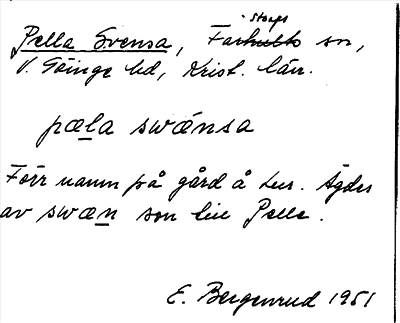 -storps
Pella Svensa, Farhults sn,
V. Göinge hd, Krist. län.
pæla swánsa
Förr namn på gård å hus. Ägdes
av swæn son hie Pelle.
E. Bergenrud 1951